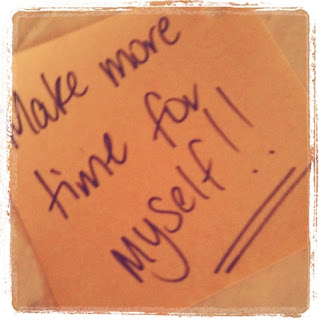 Make more
time for
myself!!